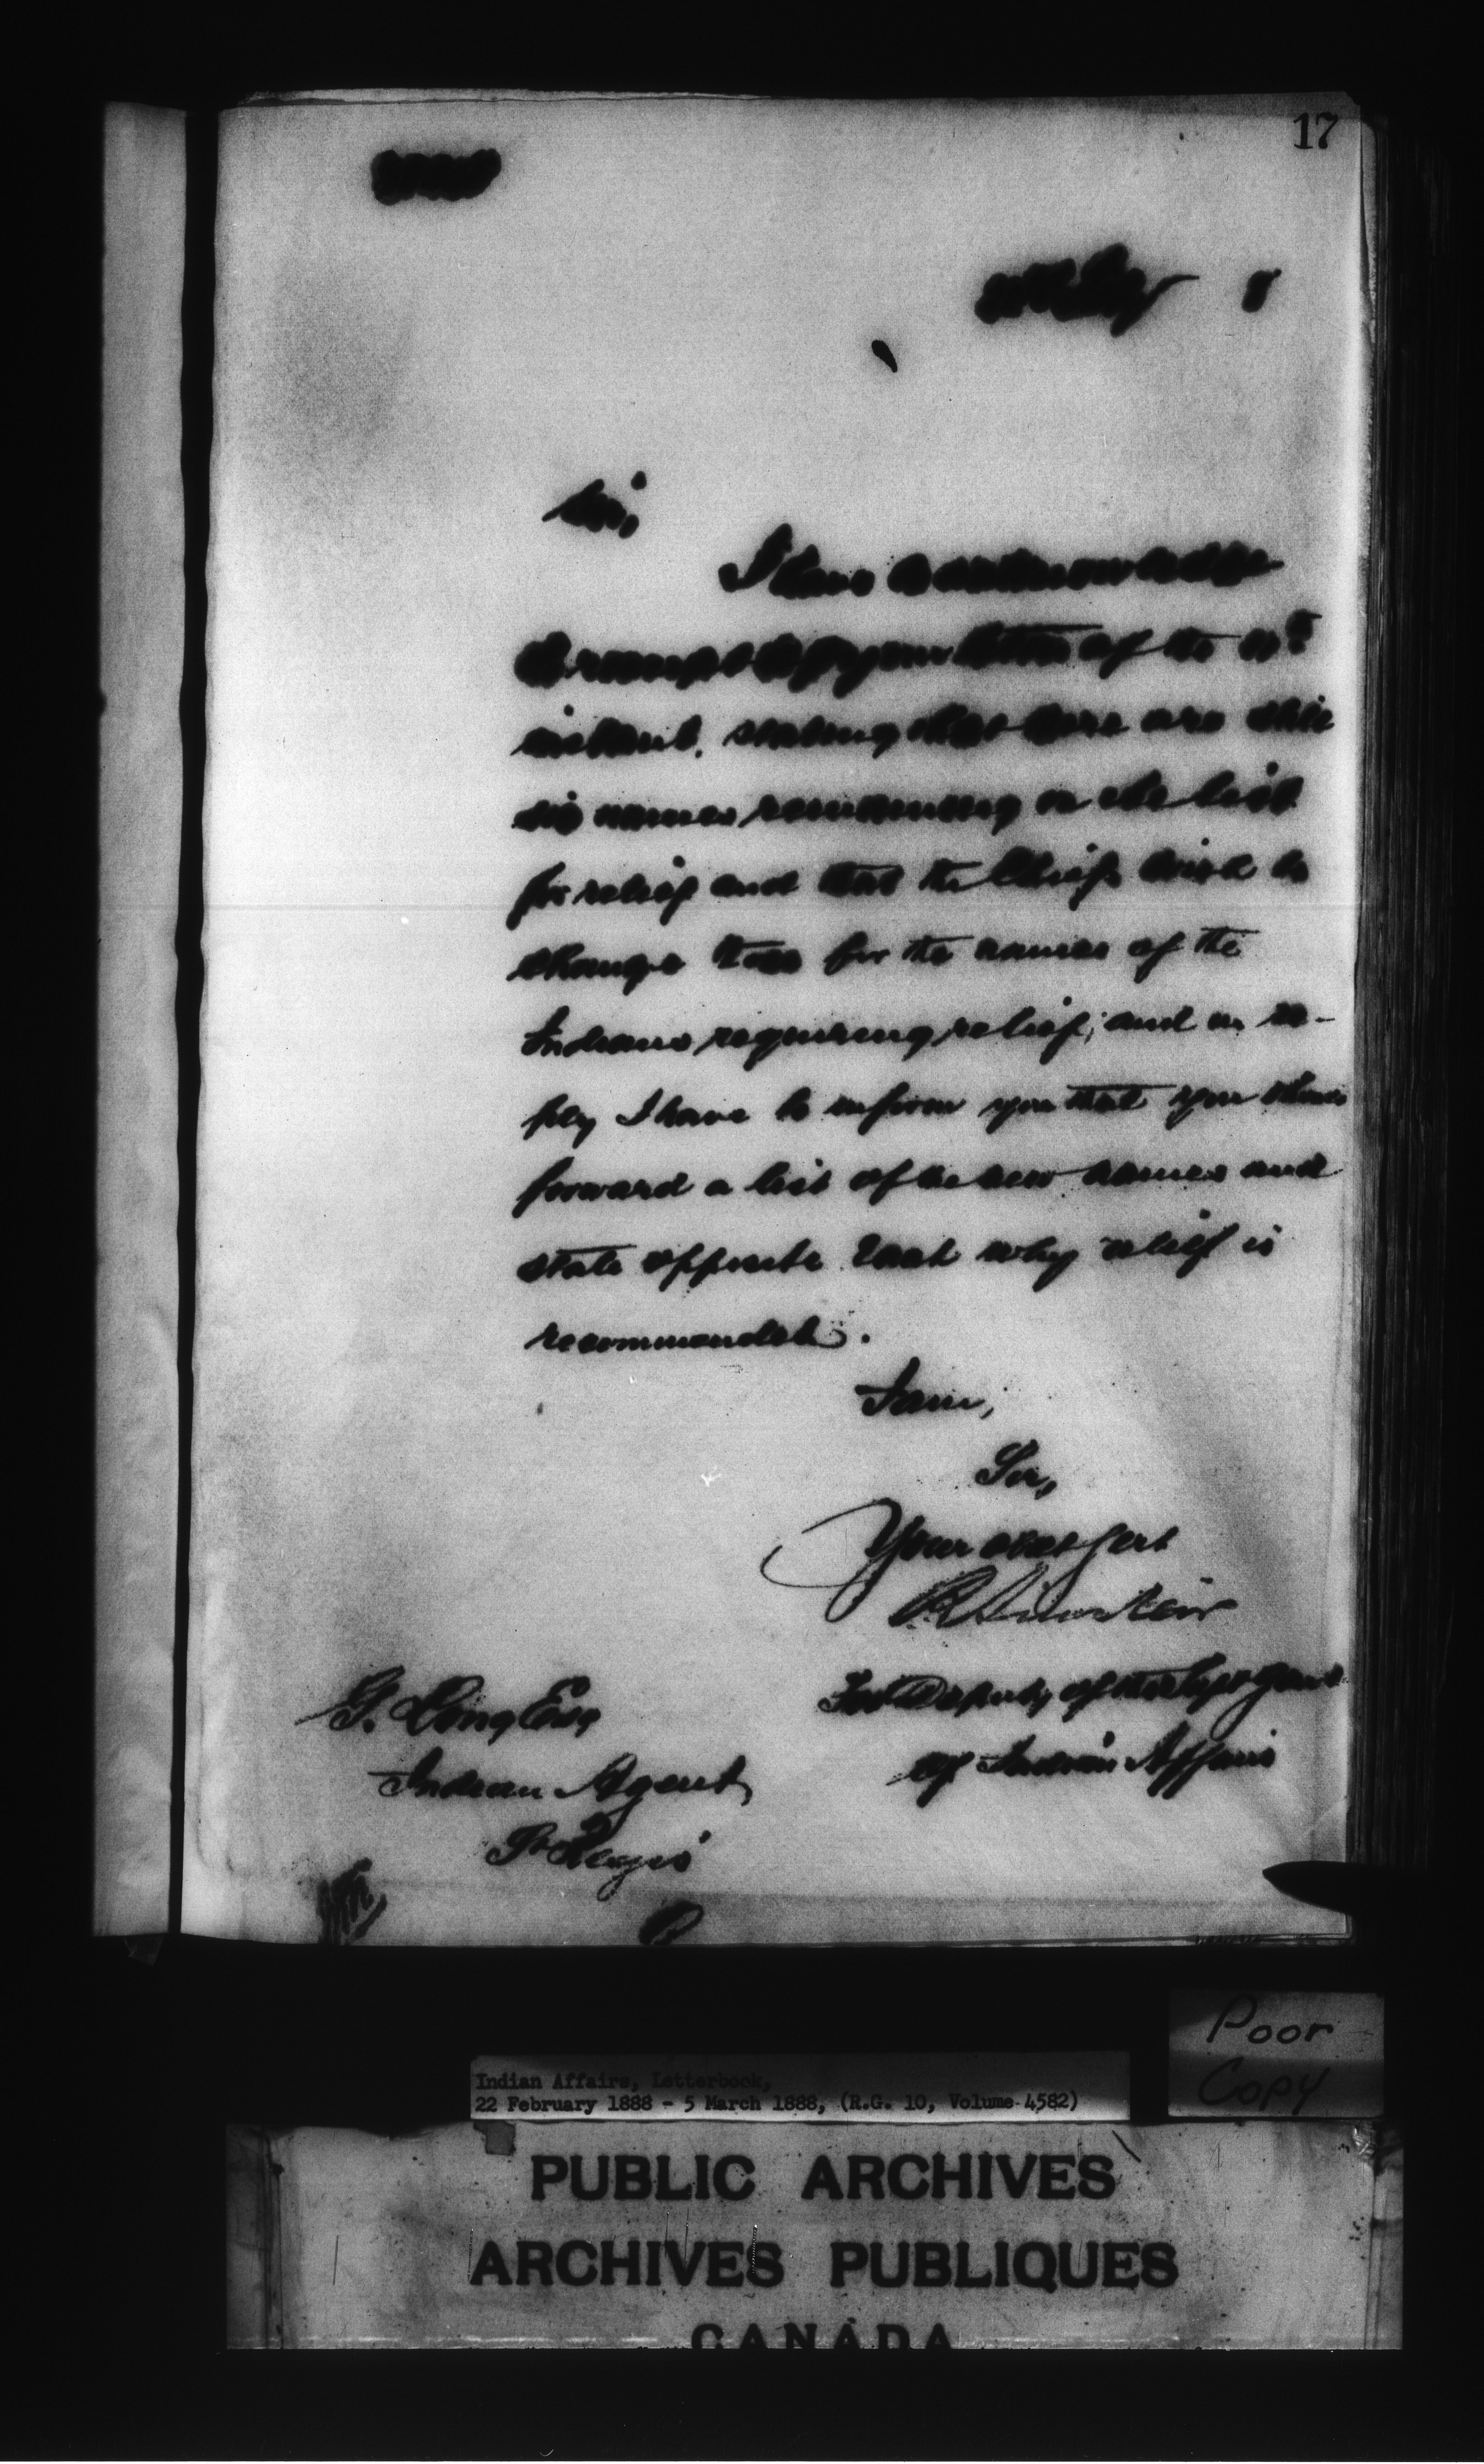 17
Sir,
I have to acknowledge
the receipt of your letter of the
instant, stating that there are still
six names remaining on the list
for relief and that the Chiefs wish to
change these for the names of the
Indians requiring relief; and in re-
ply I have to inform you that you should
forward a list of the new names and
state opposite each why relief is
recommended.
I am,
Sir,
Your obedt Servt
R Sinclair
For Deputy of the Supt Genl
of Indian Affairs
G. Long Esq
Indian Agent,
St Regis
Poor
Copy
Indian Affairs, Letterbook,
22 February 1888 - 5 March 1888, (R.G. 10, Volume 4582)
PUBLIC ARCHIVES
ARCHIVES PUBLIQUES
CANADA